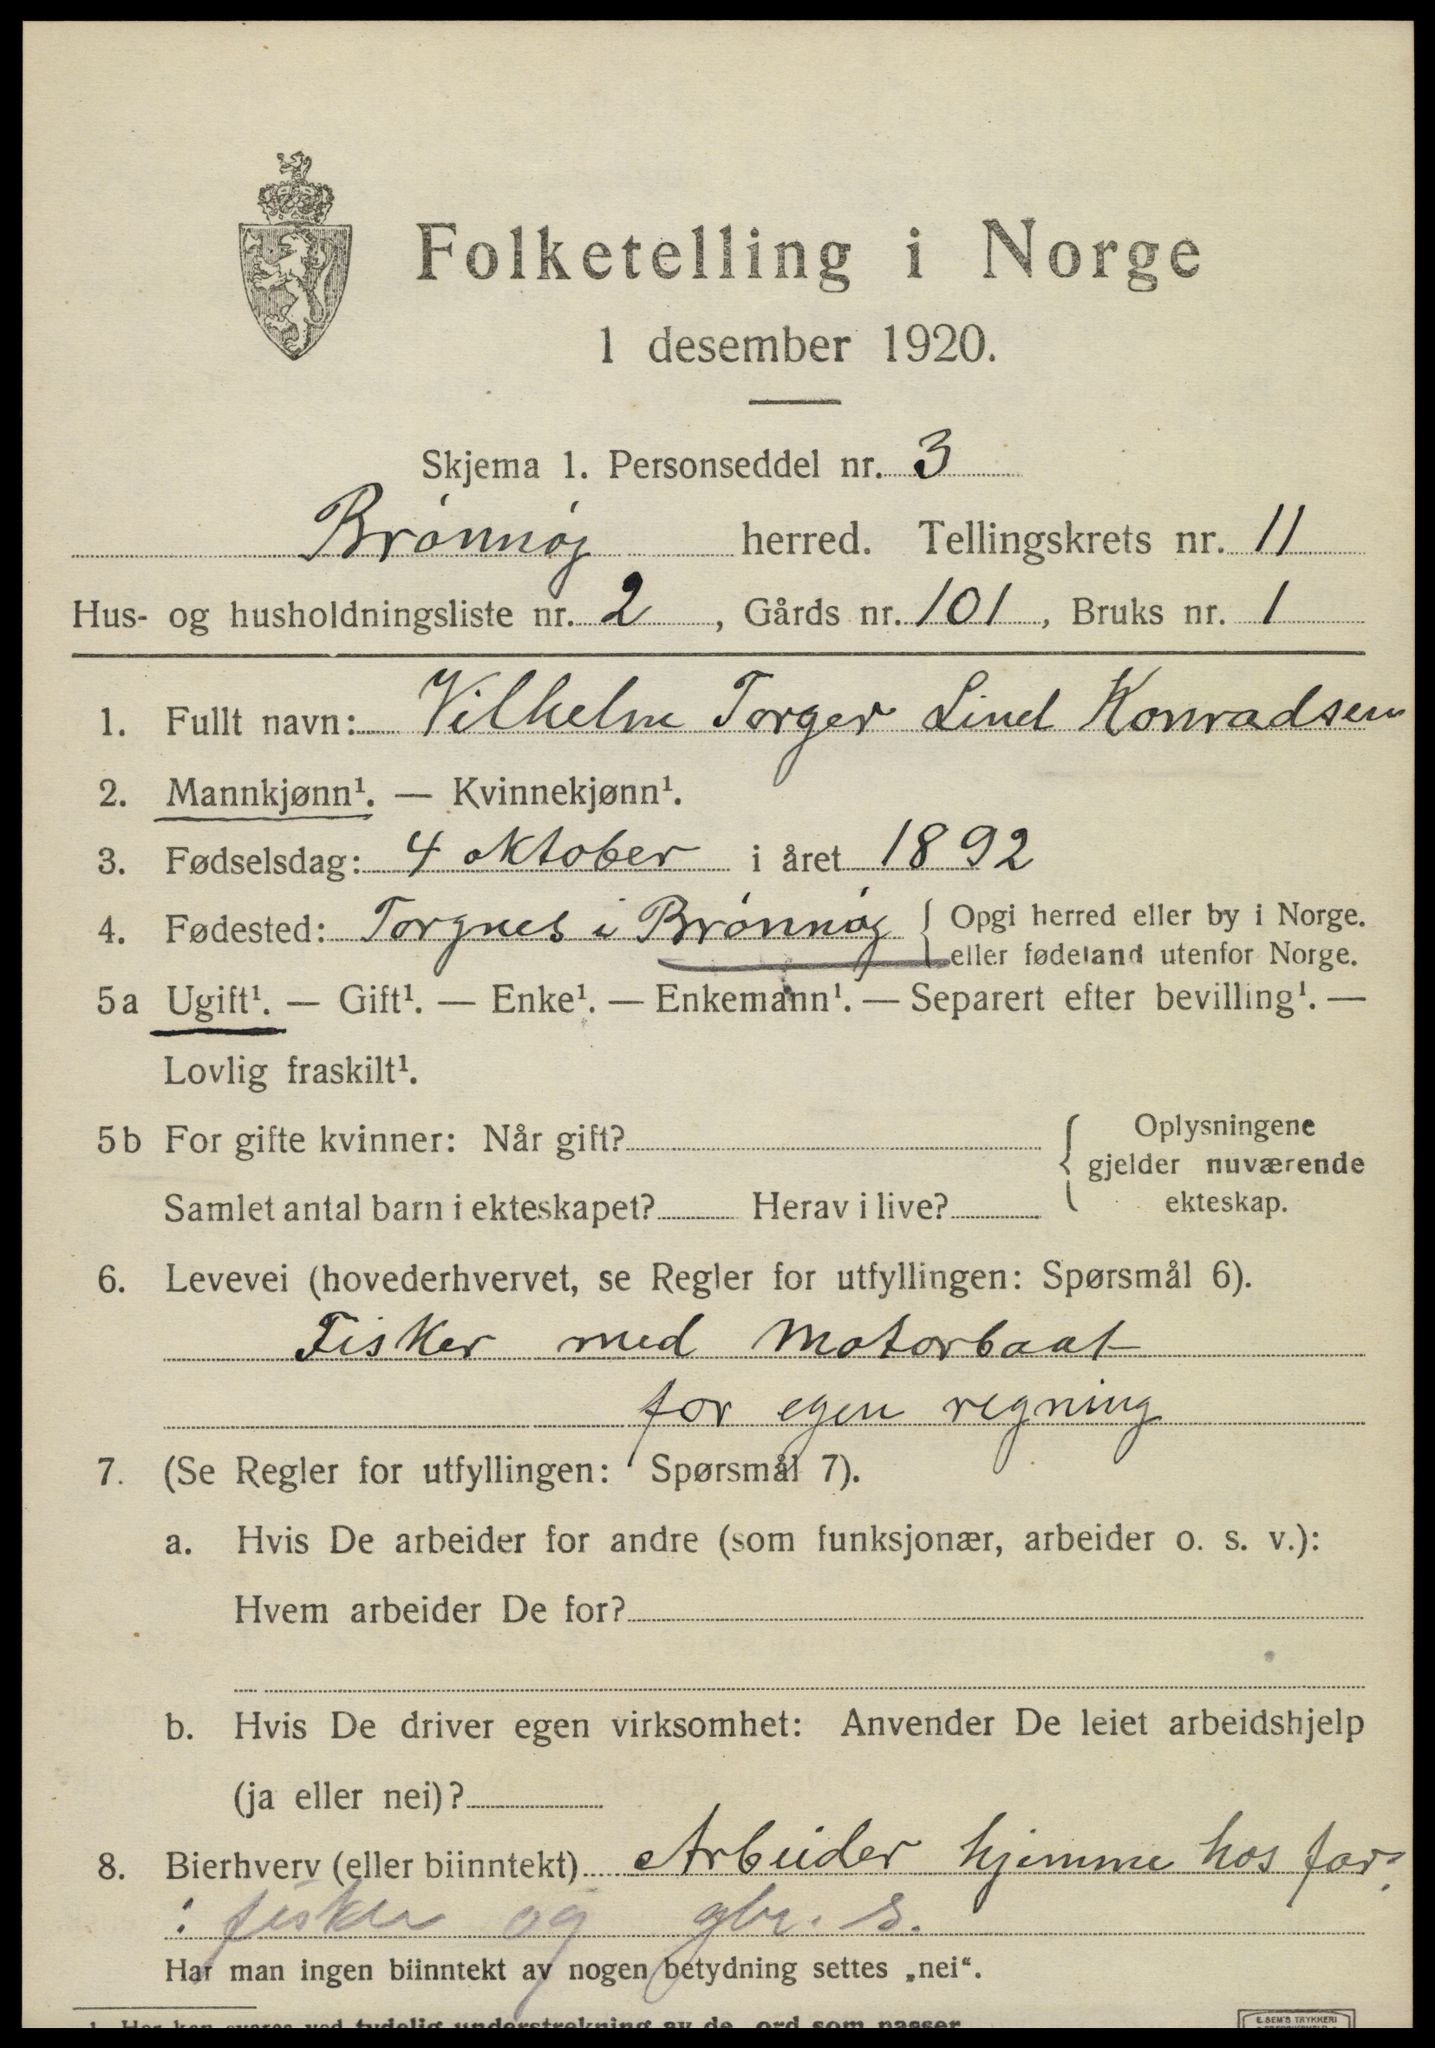 Folketelling i Norge
1 desember 1920.
Skjema 1. Personseddel nr. 3
Brønnøy herred. Tellingskrets nr. 11
Hus- og husholdningsliste nr. 2, Gårds nr. 101, Bruks nr. 1
1. Fullt navn: Vilhelm Torger Lind Konradsen
2. Mannkjønn¹. — Kvinnekjønn¹.
3. Fødselsdag: 4 oktober i året 1892
4. Fødested: Torgnes i Brønnøy { Opgi herred eller by i Norge.
eller fødeland utenfor Norge.
5a Ugift¹. — Gift¹. — Enke¹. — Enkemann¹. — Separert efter bevilling¹. —
Lovlig fraskilt¹.
5b For gifte kvinner: Når gift? { Oplysningene
gjelder nuværende
Samlet antal barn i ekteskapet? Herav i live? ekteskap.
6. Levevei (hovederhvervet, se Regler for utfyllingen: Spørsmål 6).
Fisker med Motorbaat
for egen regning
7. (Se Regler for utfyllingen: Spørsmål 7).
a. Hvis De arbeider for andre (som funksjonær, arbeider o. s. v.):
Hvem arbeider De for?
b. Hvis De driver egen virksomhet: Anvender De leiet arbeidshjelp
(ja eller nei)?
8. Bierhverv (eller biinntekt) Arbeider hjemme hos far
: fisker og gbr. s.
Har man ingen biinntekt av nogen betydning settes „nei“.
1. Her kan svares ved tydelig understrekning av de ord som passer.
E. SEM'S TRYKKERI